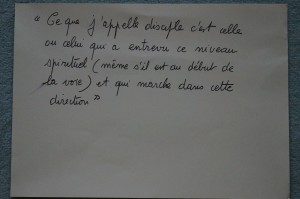 " Ce que j'appelle disciple c'est celle
ou celui qui a entrevu ce niveau
spirituel (même s'il est au début de
la voie) et qui marche dans cette
direction "